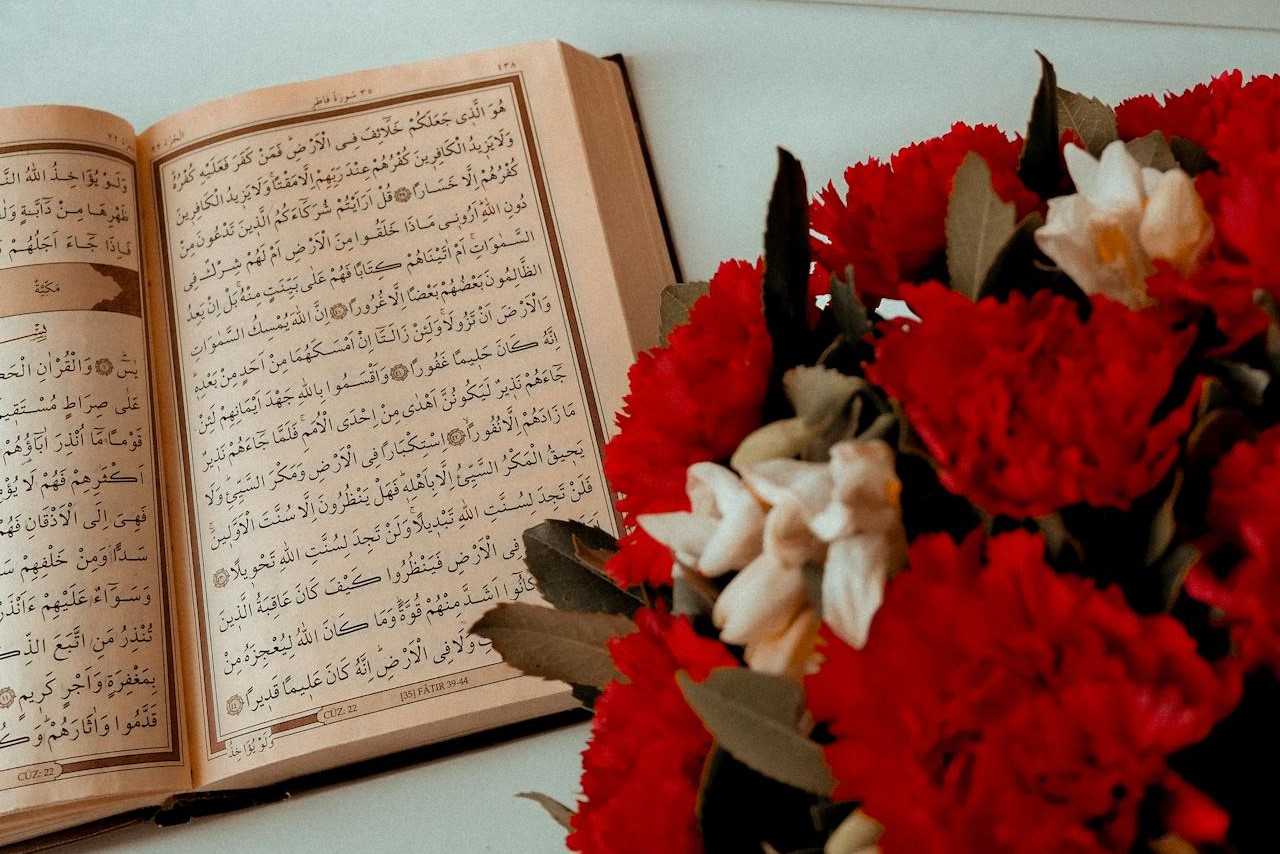 ٤٣٨
٣٥ سُورَةُ فَاطِرٍ
هُوَ الَّذ۪ي جَعَلَكُمْ خَلَٓائِفَ فِي الْاَرْضِۜ فَمَنْ كَفَرَ فَعَلَيْهِ كُفْرُهُۜ
وَلَا يَز۪يدُ الْكَافِر۪ينَ كُفْرُهُمْ عِنْدَ رَبِّهِمْ اِلَّا مَقْتًاۚ وَلَا يَز۪يدُ الْكَافِر۪ينَ
كُفْرُهُمْ اِلَّا خَسَارًا ﴿٣٩﴾ قُلْ اَرَاَيْتُمْ شُرَكَٓاءَكُمُ الَّذ۪ينَ تَدْعُونَ مِنْ
دُونِ اللّٰهِۜ اَرُون۪ي مَاذَا خَلَقُوا مِنَ الْاَرْضِ اَمْ لَهُمْ شِرْكٌ فِي
السَّمٰوَاتِۚ اَمْ اٰتَيْنَاهُمْ كِتَابًا فَهُمْ عَلٰى بَيِّنَتٍ مِنْهُۚ بَلْ اِنْ يَعِدُ
الظَّالِمُونَ بَعْضُهُمْ بَعْضًا اِلَّا غُرُورًا ﴿٤٠﴾ اِنَّ اللّٰهَ يُمْسِكُ السَّمٰوَاتِ
وَالْاَرْضَ اَنْ تَزُولَاۚ وَلَئِنْ زَالَتَٓا اِنْ اَمْسَكَهُمَا مِنْ اَحَدٍ مِنْ بَعْدِه۪ۜ
اِنَّهُ كَانَ حَل۪يمًا غَفُورًا ﴿٤١﴾ وَاَقْسَمُوا بِاللّٰهِ جَهْدَ اَيْمَانِهِمْ لَئِنْ
جَٓاءَهُمْ نَذ۪يرٌ لَيَكُونُنَّ اَهْدٰى مِنْ اِحْدَى الْاُمَمِۚ فَلَمَّا جَٓاءَهُمْ نَذ۪يرٌ
مَا زَادَهُمْ اِلَّا نُفُورًاۙ ﴿٤٢﴾ اِسْتِكْبَارًا فِي الْاَرْضِ وَمَكْرَ السَّيِّئِۜ وَلَا
يَح۪يقُ الْمَكْرُ السَّيِّئُ اِلَّا بِاَهْلِه۪ۜ فَهَلْ يَنْظُرُونَ اِلَّا سُنَّتَ الْاَوَّل۪ينَۚ
فَلَنْ تَجِدَ لِسُنَّتِ اللّٰهِ تَبْد۪يلًاۚ وَلَنْ تَجِدَ لِسُنَّتِ اللّٰهِ تَحْو۪يلًا ﴿٤٣﴾
فِي الْاَرْضِ فَيَنْظُرُوا كَيْفَ كَانَ عَاقِبَةُ الَّذ۪ينَ
كَانُٓوا اَشَدَّ مِنْهُمْ قُوَّةًۜ وَمَا كَانَ اللّٰهُ لِيُعْجِزَهُ مِنْ
وَلَا فِي الْاَرْضِۜ اِنَّهُ كَانَ عَل۪يمًا قَد۪يرًا ﴿٤٤﴾
[35] FÂTIR 39-44
CÜZ: 22
وَلَوْ يُؤَاخِذُ
وَلَوْ يُؤَاخِذُ اللّٰهُ
ظَهْرِهَا مِنْ دَٓابَّةٍ
فَاِذَا جَٓاءَ اَجَلُهُمْ
مَكِّيَّةٌ
يٰسٓ ﴿١﴾ وَالْقُرْاٰنِ
عَلٰى صِرَاطٍ
قَوْمًا مَٓا اُنْذِرَ اٰبَٓاؤُهُمْ
اَكْثَرِهِمْ فَهُمْ لَا
فَهِيَ اِلَى الْاَذْقَانِ
سَدًّا وَمِنْ خَلْفِهِمْ
وَسَوَٓاءٌ عَلَيْهِمْ
تُنْذِرُ مَنِ اتَّبَعَ
بِمَغْفِرَةٍ وَاَجْرٍ كَر۪يمٍ ﴿١١﴾
قَدَّمُوا وَاٰثَارَهُمْۜ
CÜZ: 22